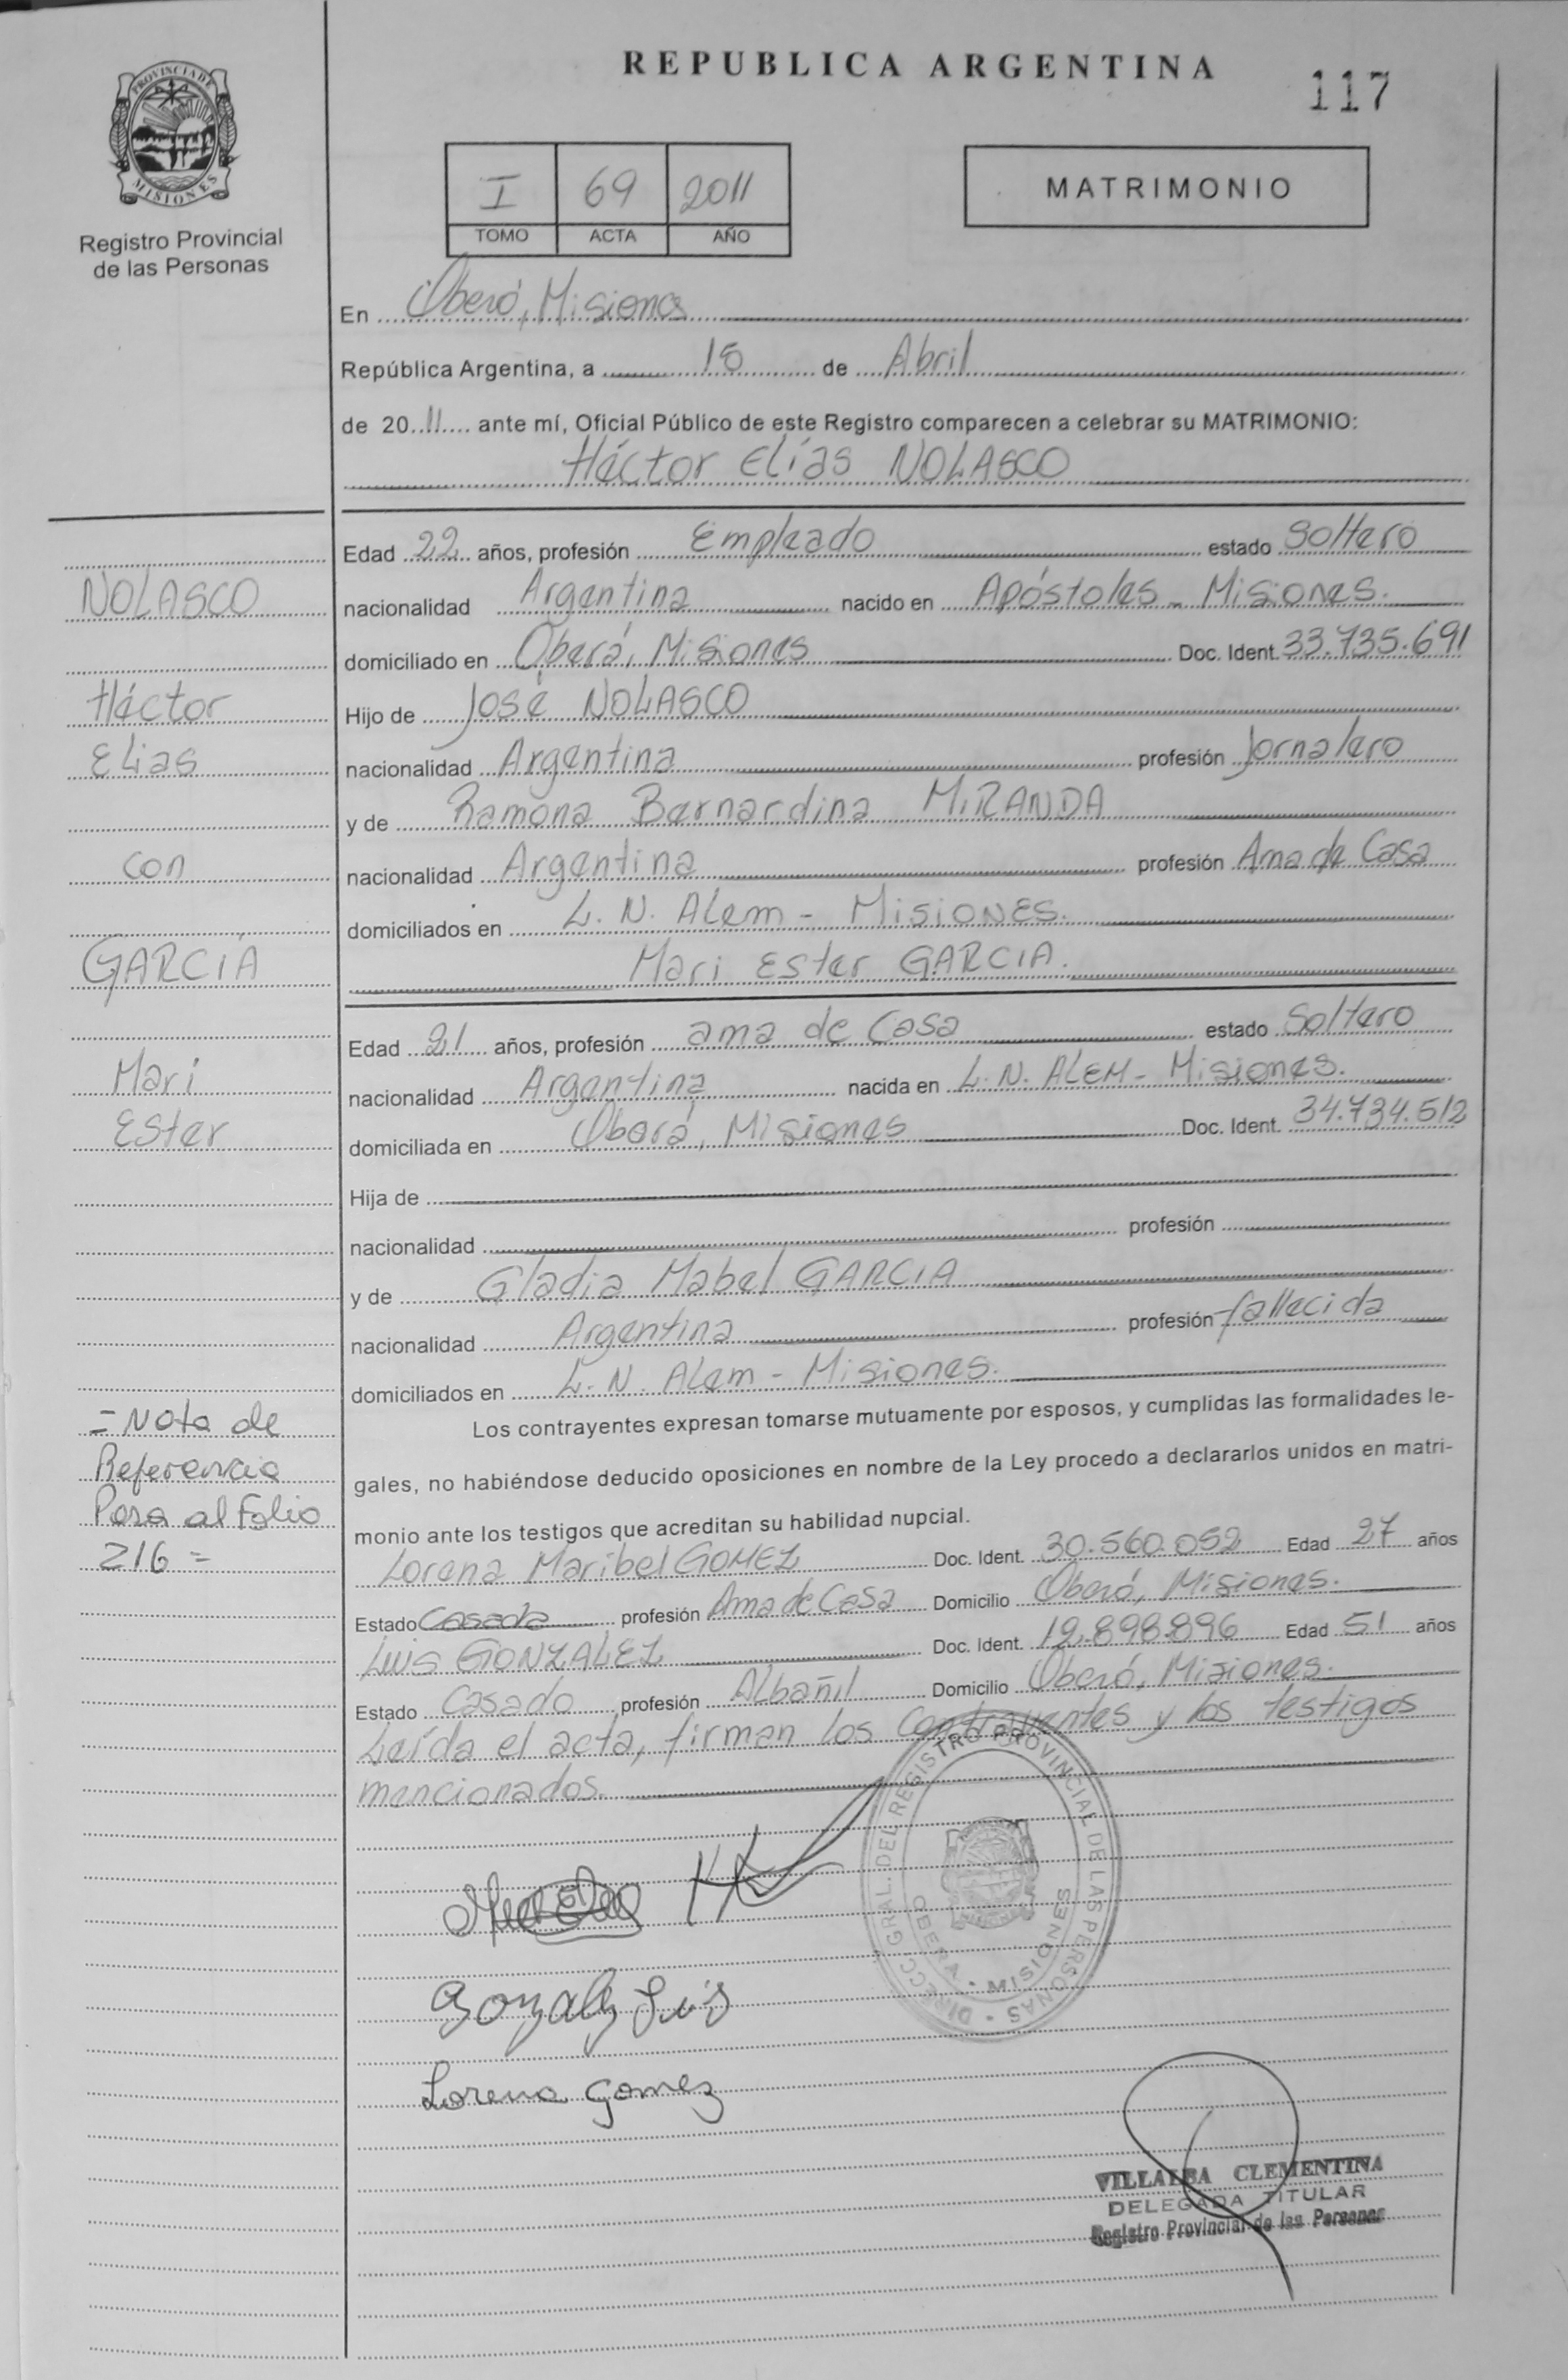 REPUBLICA ARGENTINA
117
PROVINCIA DE
MISIONES
Registro Provincial
de las Personas
I 69 2011
TOMO ACTA AÑO
MATRIMONIO
En Oberá, Misiones
República Argentina, a 15 de Abril
de 2011 ante mí, Oficial Público de este Registro comparecen a celebrar su MATRIMONIO:
Héctor Elías NOLASCO
Edad 22 años, profesión Empleado estado Soltero
nacionalidad Argentina nacido en Apóstoles - Misiones.
domiciliado en Oberá, Misiones Doc. Ident. 33.735.691
Hijo de José NOLASCO
nacionalidad Argentina profesión Jornalero
y de Ramona Bernardina MIRANDA
nacionalidad Argentina profesión Ama de Casa
domiciliados en L. N. Alem - MISIONES.
Mari Ester GARCIA.
Edad 21 años, profesión ama de Casa estado Soltero
nacionalidad Argentina nacida en L. N. ALEM - Misiones.
domiciliada en Oberá, Misiones Doc. Ident. 34.734.512
Hija de
nacionalidad profesión
y de Gladia Mabel GARCIA
nacionalidad Argentina profesión fallecida
domiciliados en L. N. Alem - Misiones.
Los contrayentes expresan tomarse mutuamente por esposos, y cumplidas las formalidades le-
gales, no habiéndose deducido oposiciones en nombre de la Ley procedo a declararlos unidos en matri-
monio ante los testigos que acreditan su habilidad nupcial.
Lorena Maribel GOMEZ Doc. Ident. 30.560.052 Edad 27 años
Estado Casada profesión Ama de Casa Domicilio Oberá, Misiones.
Luis GONZALEZ Doc. Ident. 12.898.896 Edad 51 años
Estado Casado profesión Albañil Domicilio Oberá, Misiones.
Leída el acta, firman los contrayentes y los testigos
mencionados.
NOLASCO
Héctor
Elias
con
GARCÍA
Mari
Ester
= Nota de
Referencia
Pasa al Folio
216 =
DIRECC. GRAL. DEL REGISTRO PROVINCIAL DE LAS PERSONAS
OBERA - MISIONES
Gonzalez Luis
Lorena Gomez
VILLALBA CLEMENTINA
DELEGADA TITULAR
Registro Provincial de las Personas